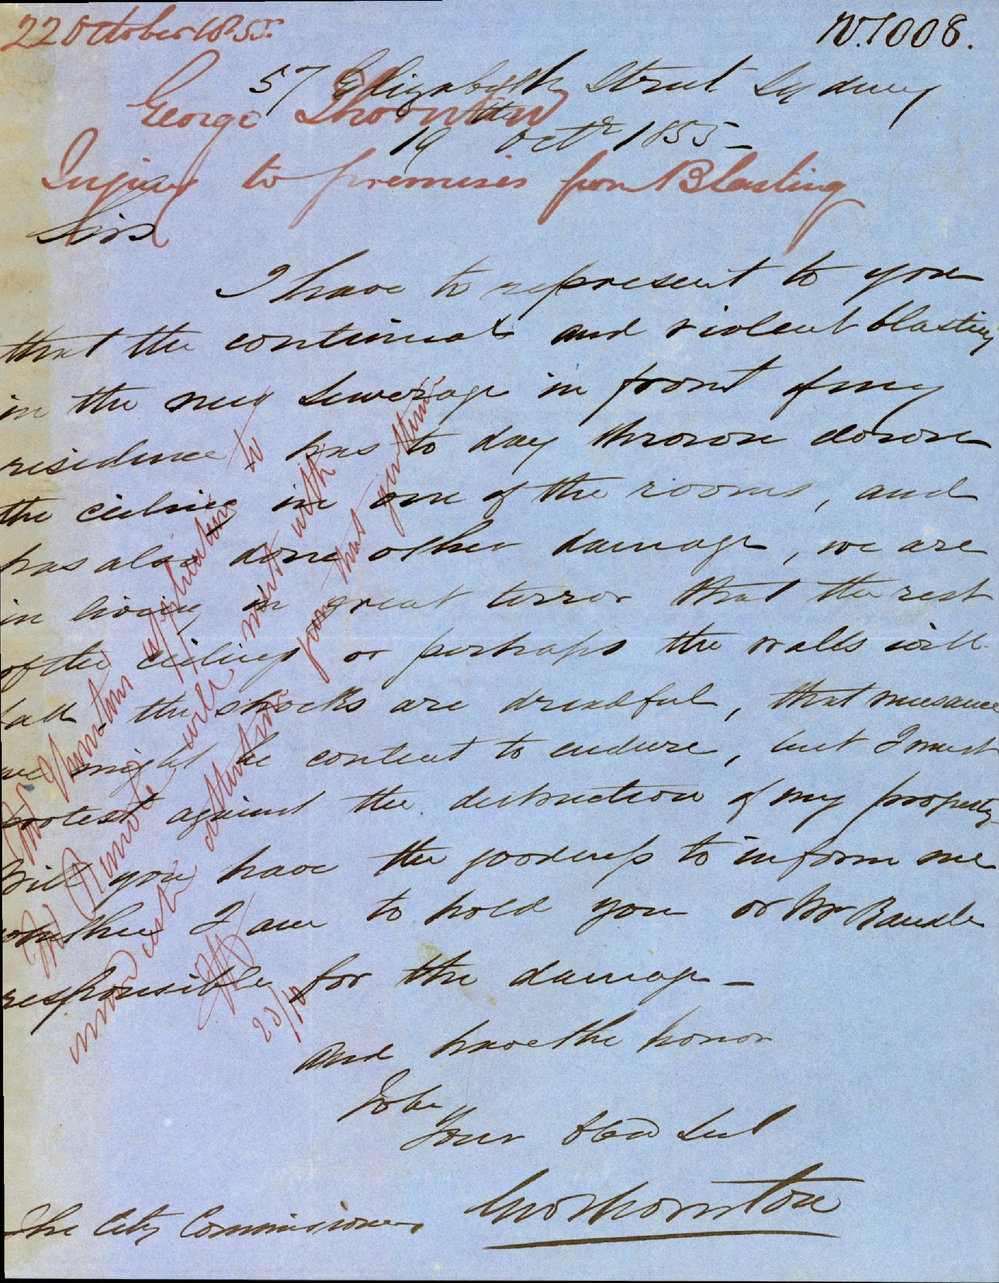 22 October 1855
No. 1008.
57 Elizabeth Street Sydney
George Thornton
19 Octr 1855 -
Injury to premises from Blasting
Sir
I have to represent to you
that the continual and violent blasting
in the new Sewerage in front of my
residence has to day thrown down
the ceiling in one of the rooms, and
has also done other damage, we are
in living in great terror that the rest
of the ceilings or perhaps the walls will
fall, the shocks are dreadful, that nuisance
we might be content to endure, but I must
protest against the destruction of my property
Will you have the goodness to inform me
whether I am to hold you or Mr Randle
responsible for the damage -
and have the honor
To be
Your Obed Sert
Geo Thornton
The City Commissioners
Mr Thorntons application to
Mr Randle will meet with
immediate attention from that gentleman
23/10